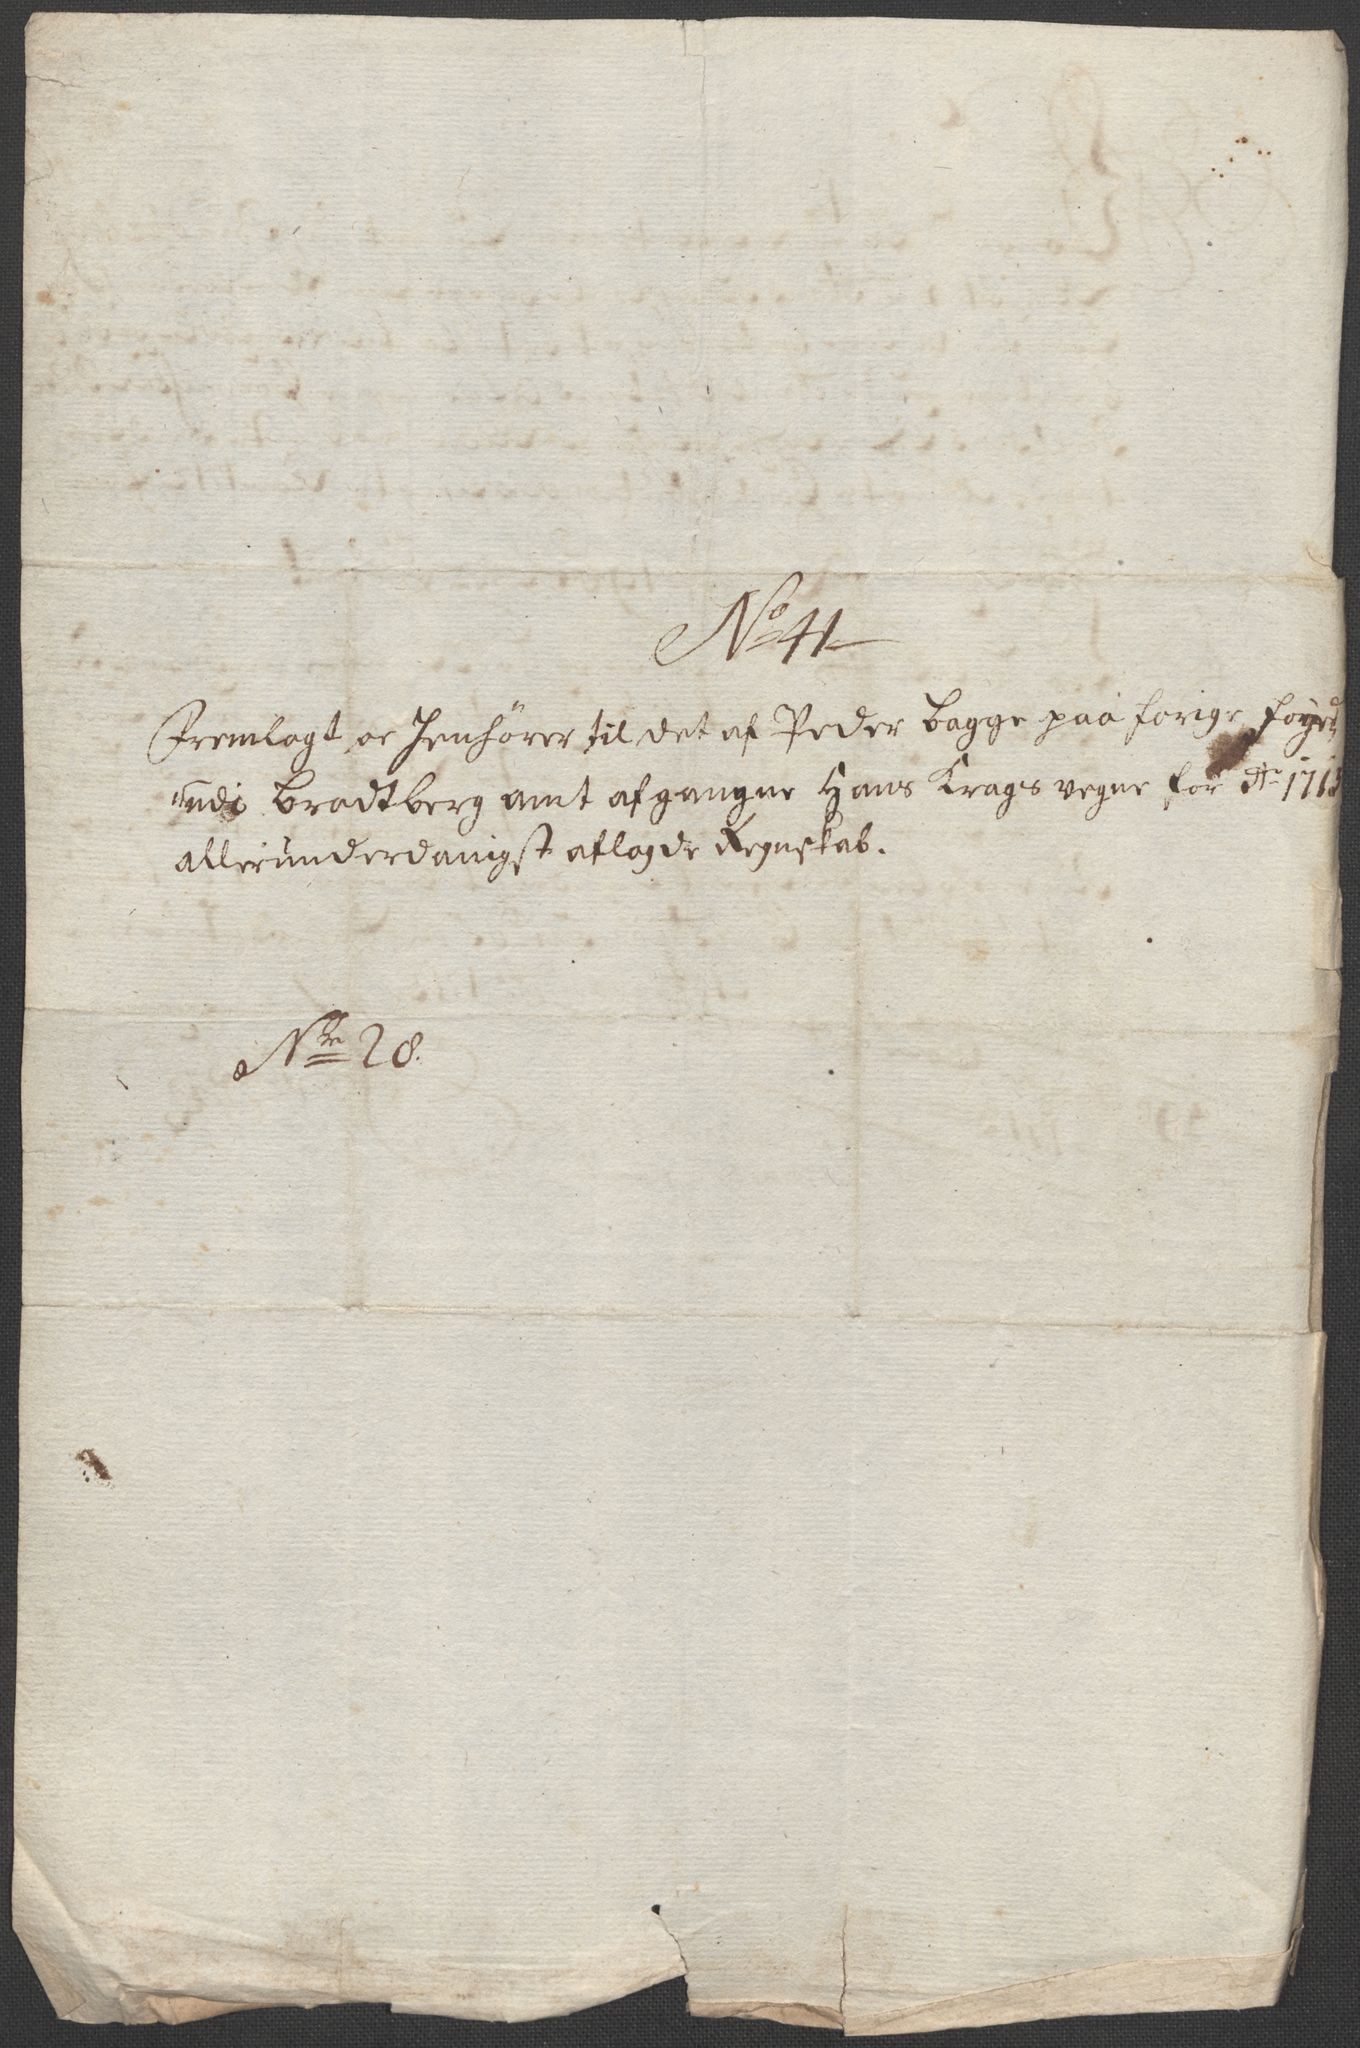 No 41
Fremlagt oc Henhörer til det af Peder Bagge paa forige
udi Bradtberg amt afgangne Hans Krags vegne for Ao 1713
allerunderdanigst aflagde Regnskab.
Nr 28.